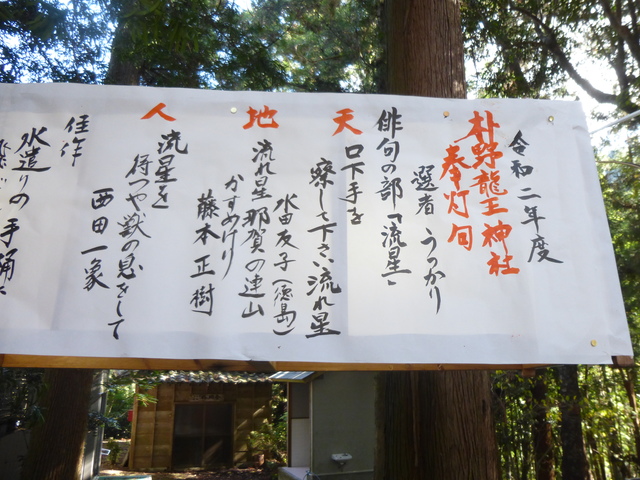 令和二年度
朴野龍王神社
奉灯句
選者 うっかり
俳句の部「流星」
天
口下手を
察して下さい流れ星
水田友子(徳島)
地
流れ星那賀の連山
かすめけり
藤本正樹
人
流星を
待つや獣の息をして
西田一象
佳作
水遣りの手踊